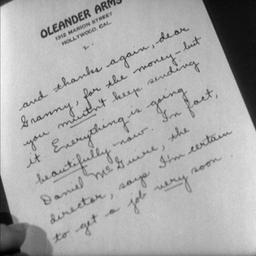 OLEANDER ARMS
1312 MARION STREET
HOLLYWOOD, CAL.
2.
and thanks again, dear
Granny, for the money - but
you mustn't keep sending
it. Everything is going
beautifully now. In fact,
Daniel McGuire, the
director, says I'm certain
to get a job very soon